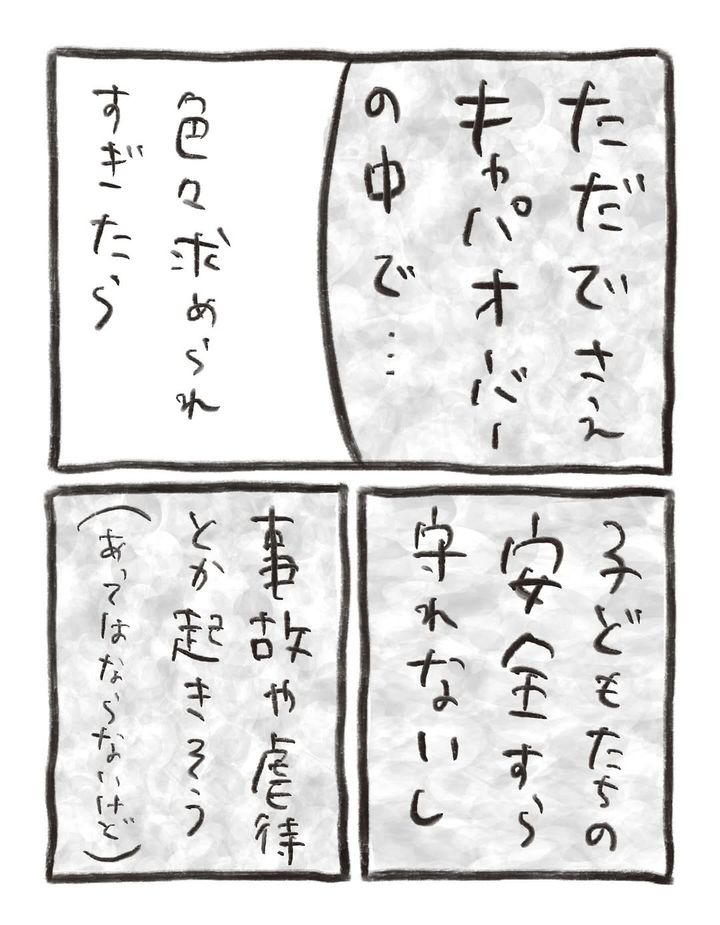 ただでさえ
キャパオーバー
の中で…
色々求められ
すぎたら
子どもたちの
安全すら
守れないし
事故や虐待
とか起きそう
(あってはならないけど)